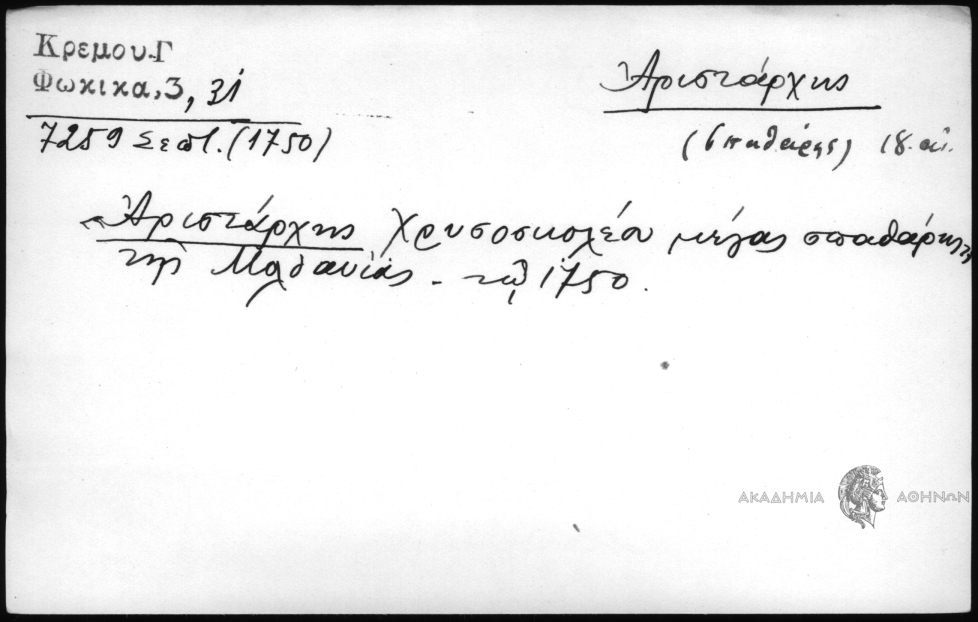 Κρεμου.Γ
Φωκικα,3, 31
7259 Σεπτ. (1750)
Ἀριστάρχης
(σπαθάρης) 18. αἰ.
Ἀριστάρχης Χρυσοσκολέου μέγας σπαθάρης
τῆς Μολδαυίας - τῷ 1750.
ΑΚΑΔΗΜΙΑ ΑΘΗΝΩΝ